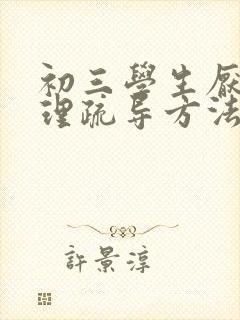 初三學生厭
理疏导方法
許景淳